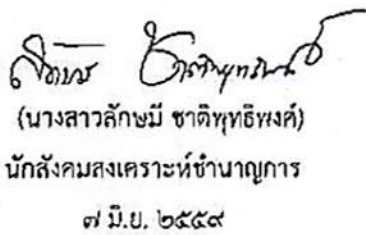 (นางสาวลักษมี ชาติพุทธิพงค์)
นักสังคมสงเคราะห์ชำนาญการ
๗ มิ.ย. ๒๕๕๙